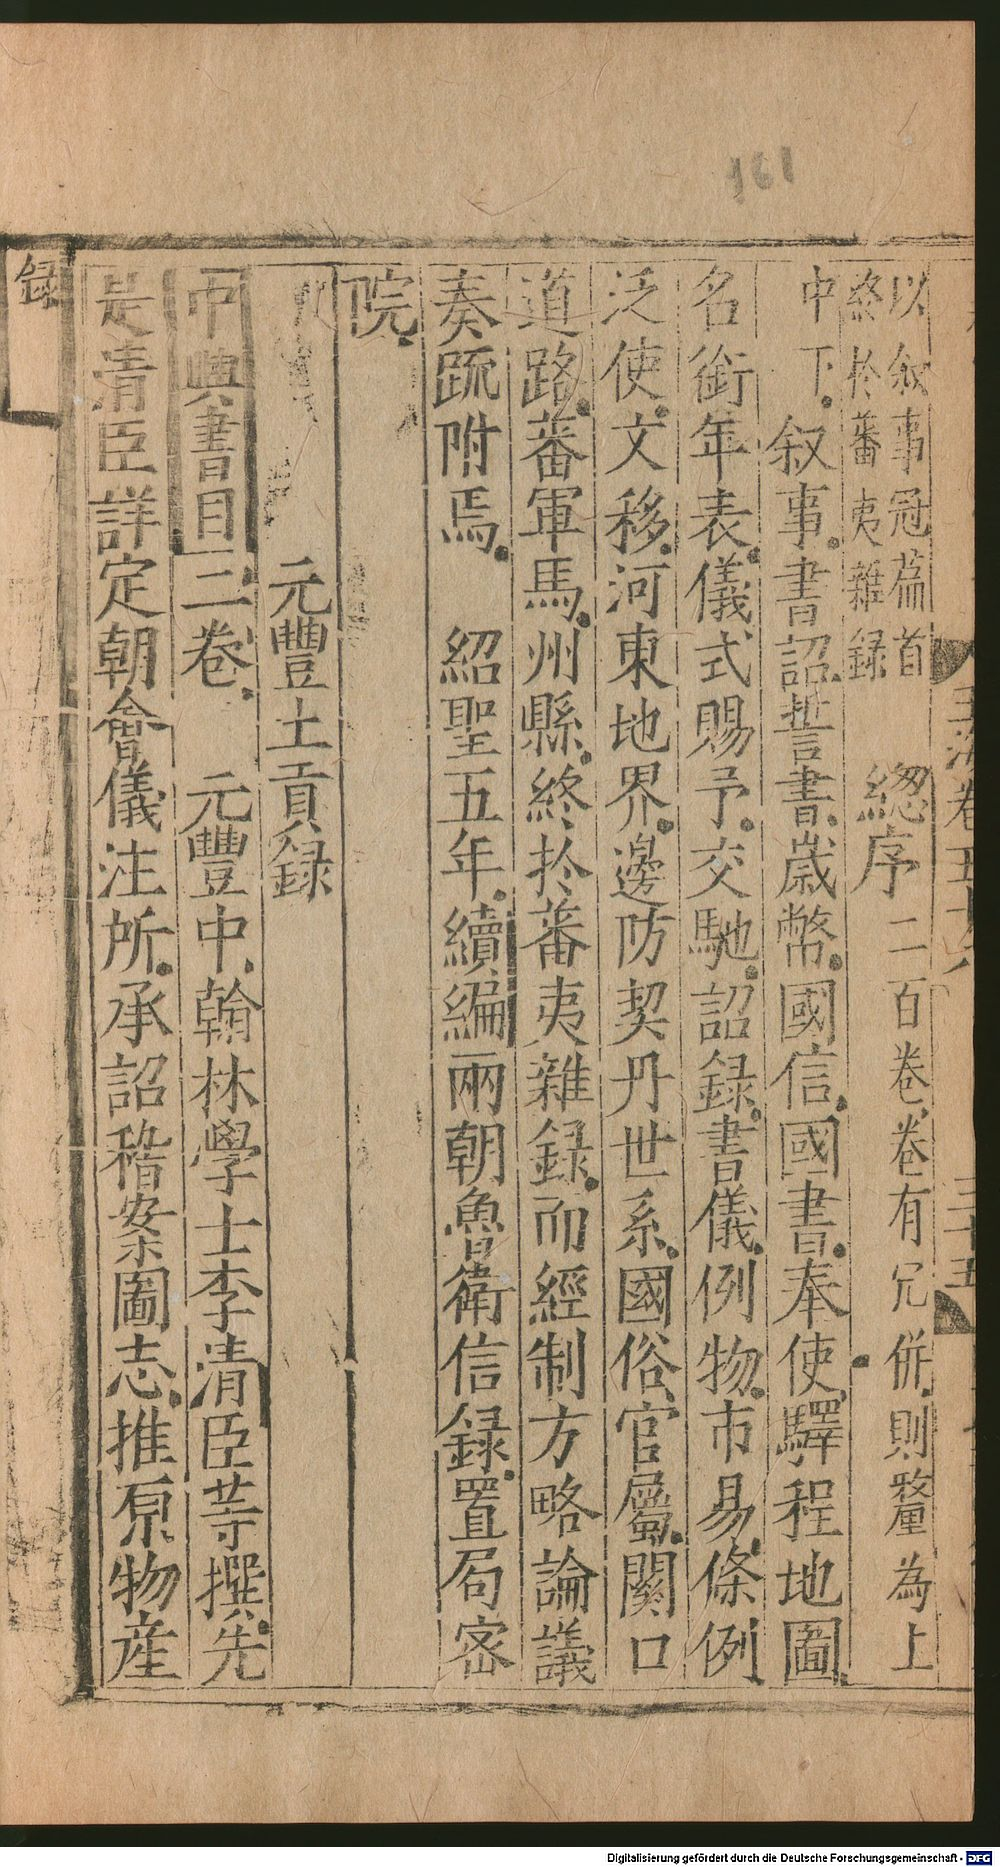 以叙事冠篇首
終於蕃夷雜録
總序二百卷卷有冗併則釐為上
中下叙事書詔誓書歲幣國信國書奉使驛程地圖
名銜年表儀式賜予交馳詔録書儀例物市易條例
泛使文移河東地界邊防契丹世系國俗官屬關口
道路蕃軍馬州縣終於蕃夷雜録而經制方略論議
奏䟽附焉 紹聖五年續編兩朝魯衛信録置局宻
院
元豐土貢録
中興書目二卷 元豐中翰林學士李清臣等撰先
是清臣詳定朝會儀注所承詔稽案圖志推原物産
録
玉海卷五十八
三十五
161
Digitalisierung gefördert durch die Deutsche Forschungsgemeinschaft - DFG